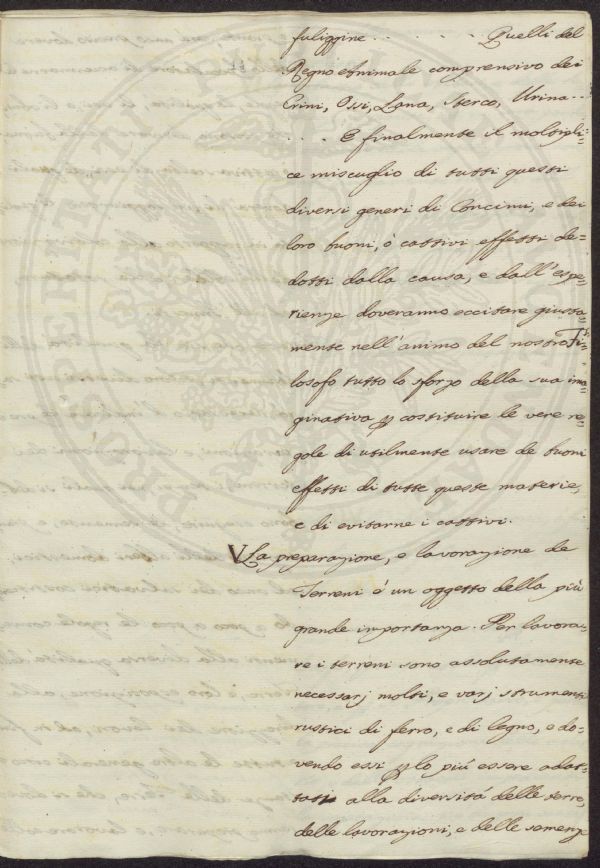 fuliggine . . . . . . . Quelli del
Regno Animale comprensivo dei
Crini, Ossi, Lana, Sterco, Urina . .
. . . . E finalmente il moltipli=
ce miscuglio di tutti questi
diversi generi di Concimi, e dei
loro buoni, ò cattivi effetti de=
dotti dalla causa, e dall'espe=
rienze doveranno eccitare giusta=
mente nell'animo del nostro Fi=
losofo tutto lo sforzo della sua ima=
ginativa p costituire le vere re=
gole di utilmente usare de buoni
effetti di tutte queste materie,
e di evitarne i cattivi.
V La preparazione, e lavorazione de
Terreni é un oggetto della più
grande importanza. Per lavora=
re i terreni sono assolutamente
necessarj molti, e varj strumenti
rustici di ferro, e di legno, e do=
vendo essi p lo più essere adat=
tati alla diversitá delle terre,
delle lavorazioni, e delle semenze